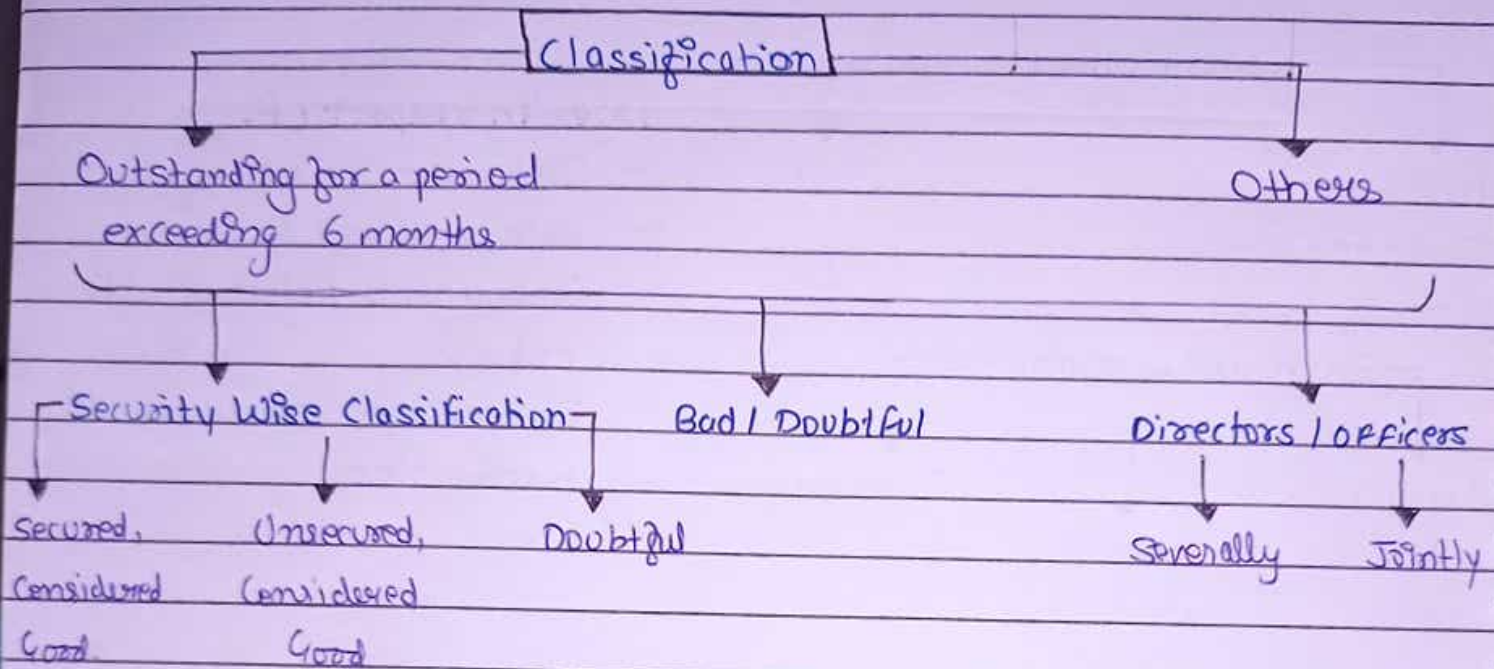 Classification
Outstanding for a period
exceeding 6 months
Others
Security Wise Classification
Bad / Doubtful
Directors / officers
Secured,
Considered
Good
Unsecured,
Considered
Good
Doubtful
Severally
Jointly